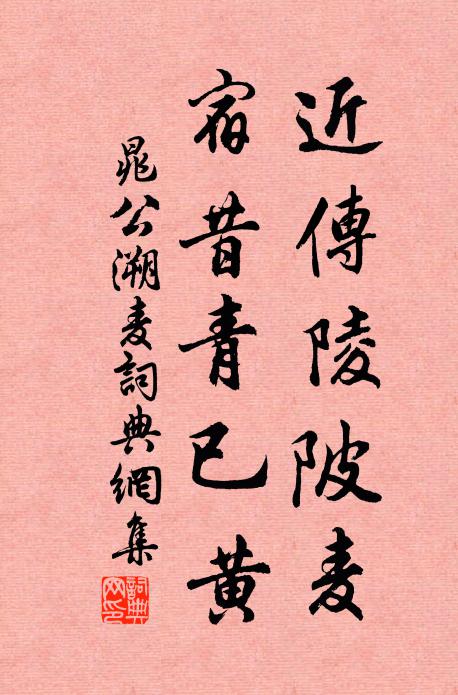 近傳陵陂麦
宿昔青已黄
晁公溯麦詞典網集
詞典網印